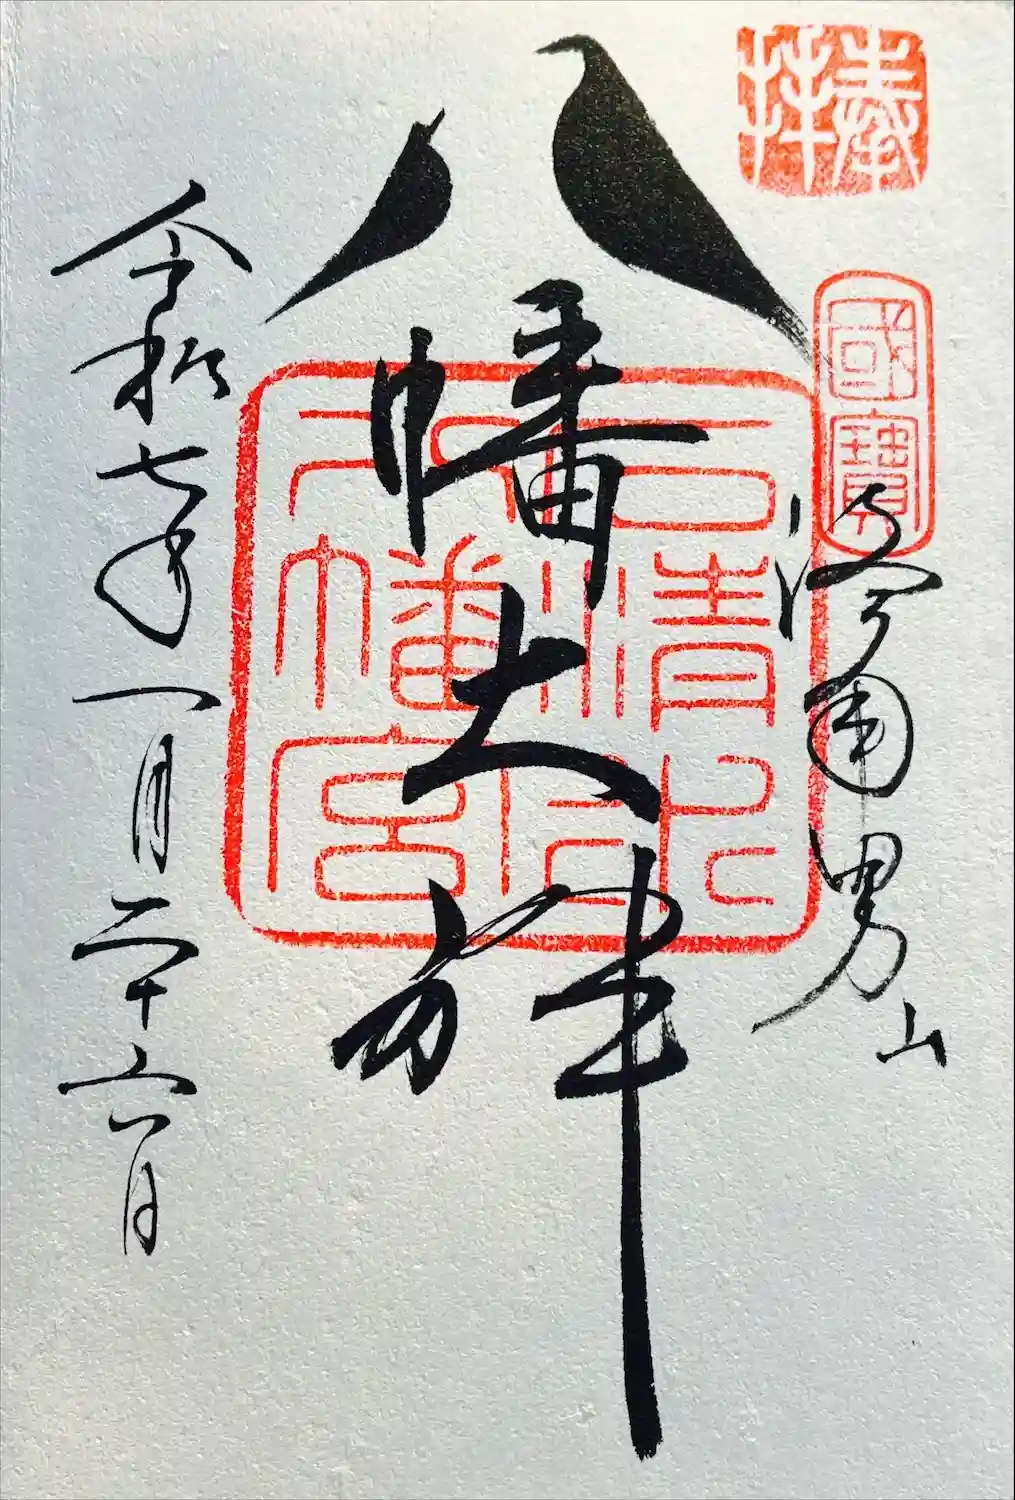 奉拝
國寶
洛南男山
八幡大神
石清水八幡宮
令和七年一月二十六日